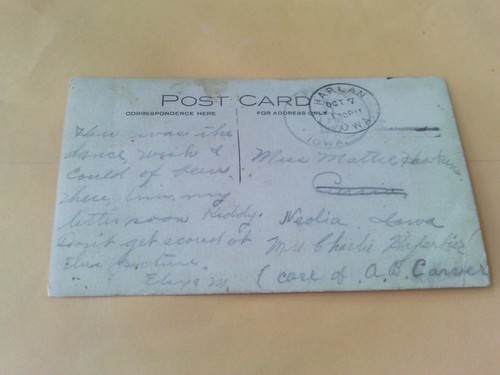 POST CARD
CORRESPONDENCE HERE
FOR ADDRESS ONLY
HARLAN
OCT 7
30 PM
IOWA
IOWA
How was the
dance wish I
Could of been
there, my
letter soon Kiddy.
Don't get scared at
this picture.
M.
Miss Mattie Hawkins,
Neolia Iowa
Mrs Charlie
(care of A. B. Carver